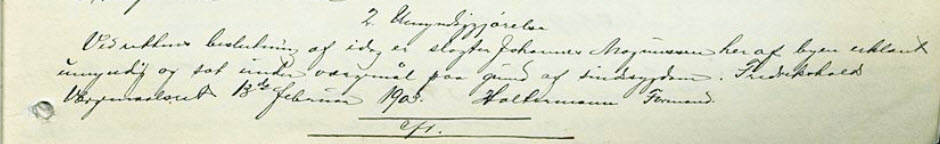 2. Umyndiggjørelse
Ved rettens beslutning af idag er slagter Johannes Magnussen her af byen erklært
umyndig og sat under værgemål paa grund af sindssygdom. Fredrikshald
Overformynderi 13de februar 1903. Holtermann Formand.